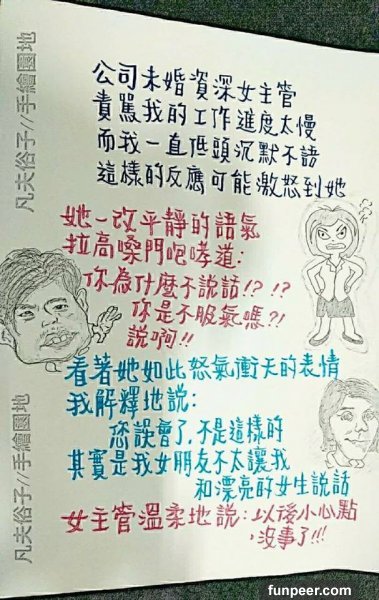 公司未婚資深女主管
責罵我的工作進度太慢
而我一直低頭沉默不語
這樣的反應可能激怒到她
她一改平靜的語氣
拉高嗓門咆哮道:
你為什麼不說話!? !?
你是不服氣嗎?!
說啊!!
看著她如此怒氣衝天的表情
我解釋地說:
您誤會了,不是這樣的
其實是我女朋友不太讓我
和漂亮的女生說話
女主管溫柔地說:以後小心點
,沒事了!!!
凡夫俗子//手繪園地
凡夫俗子//手繪園地
funpeer.com